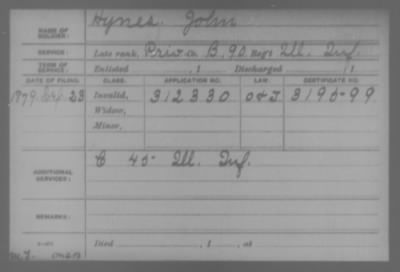 NAME OF SOLDIER: Hynes, John
SERVICE: Late rank, Priv Co. B, 90 Reg't Ill. Inf.
TERM OF SERVICE: Enlisted , 1 Discharged , 1
DATE OF FILING. CLASS. APPLICATION NO. LAW. CERTIFICATE NO.
1879 23 Invalid, 312330 319599
Widow,
Minor,
ADDITIONAL SERVICES: C 45 Ill. Inf.
REMARKS:
Died , 1 , at